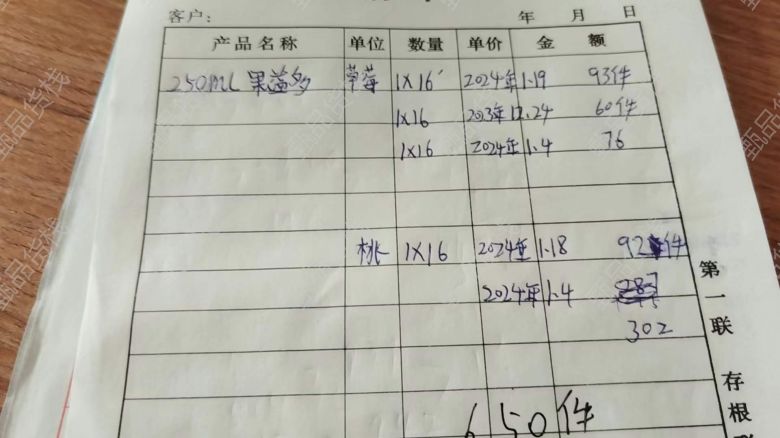 客户: 年 月 日
产品名称 单位 数量 单价 金 额
250ML 果益多 草莓 1X16 2024年1.19 93件
1X16 2023年12.24 60件
1X16 2024年1.4 76
桃 1X16 2024年1.18 92件
2024年1.4
302
650件
第一联 存根
甄品货栈